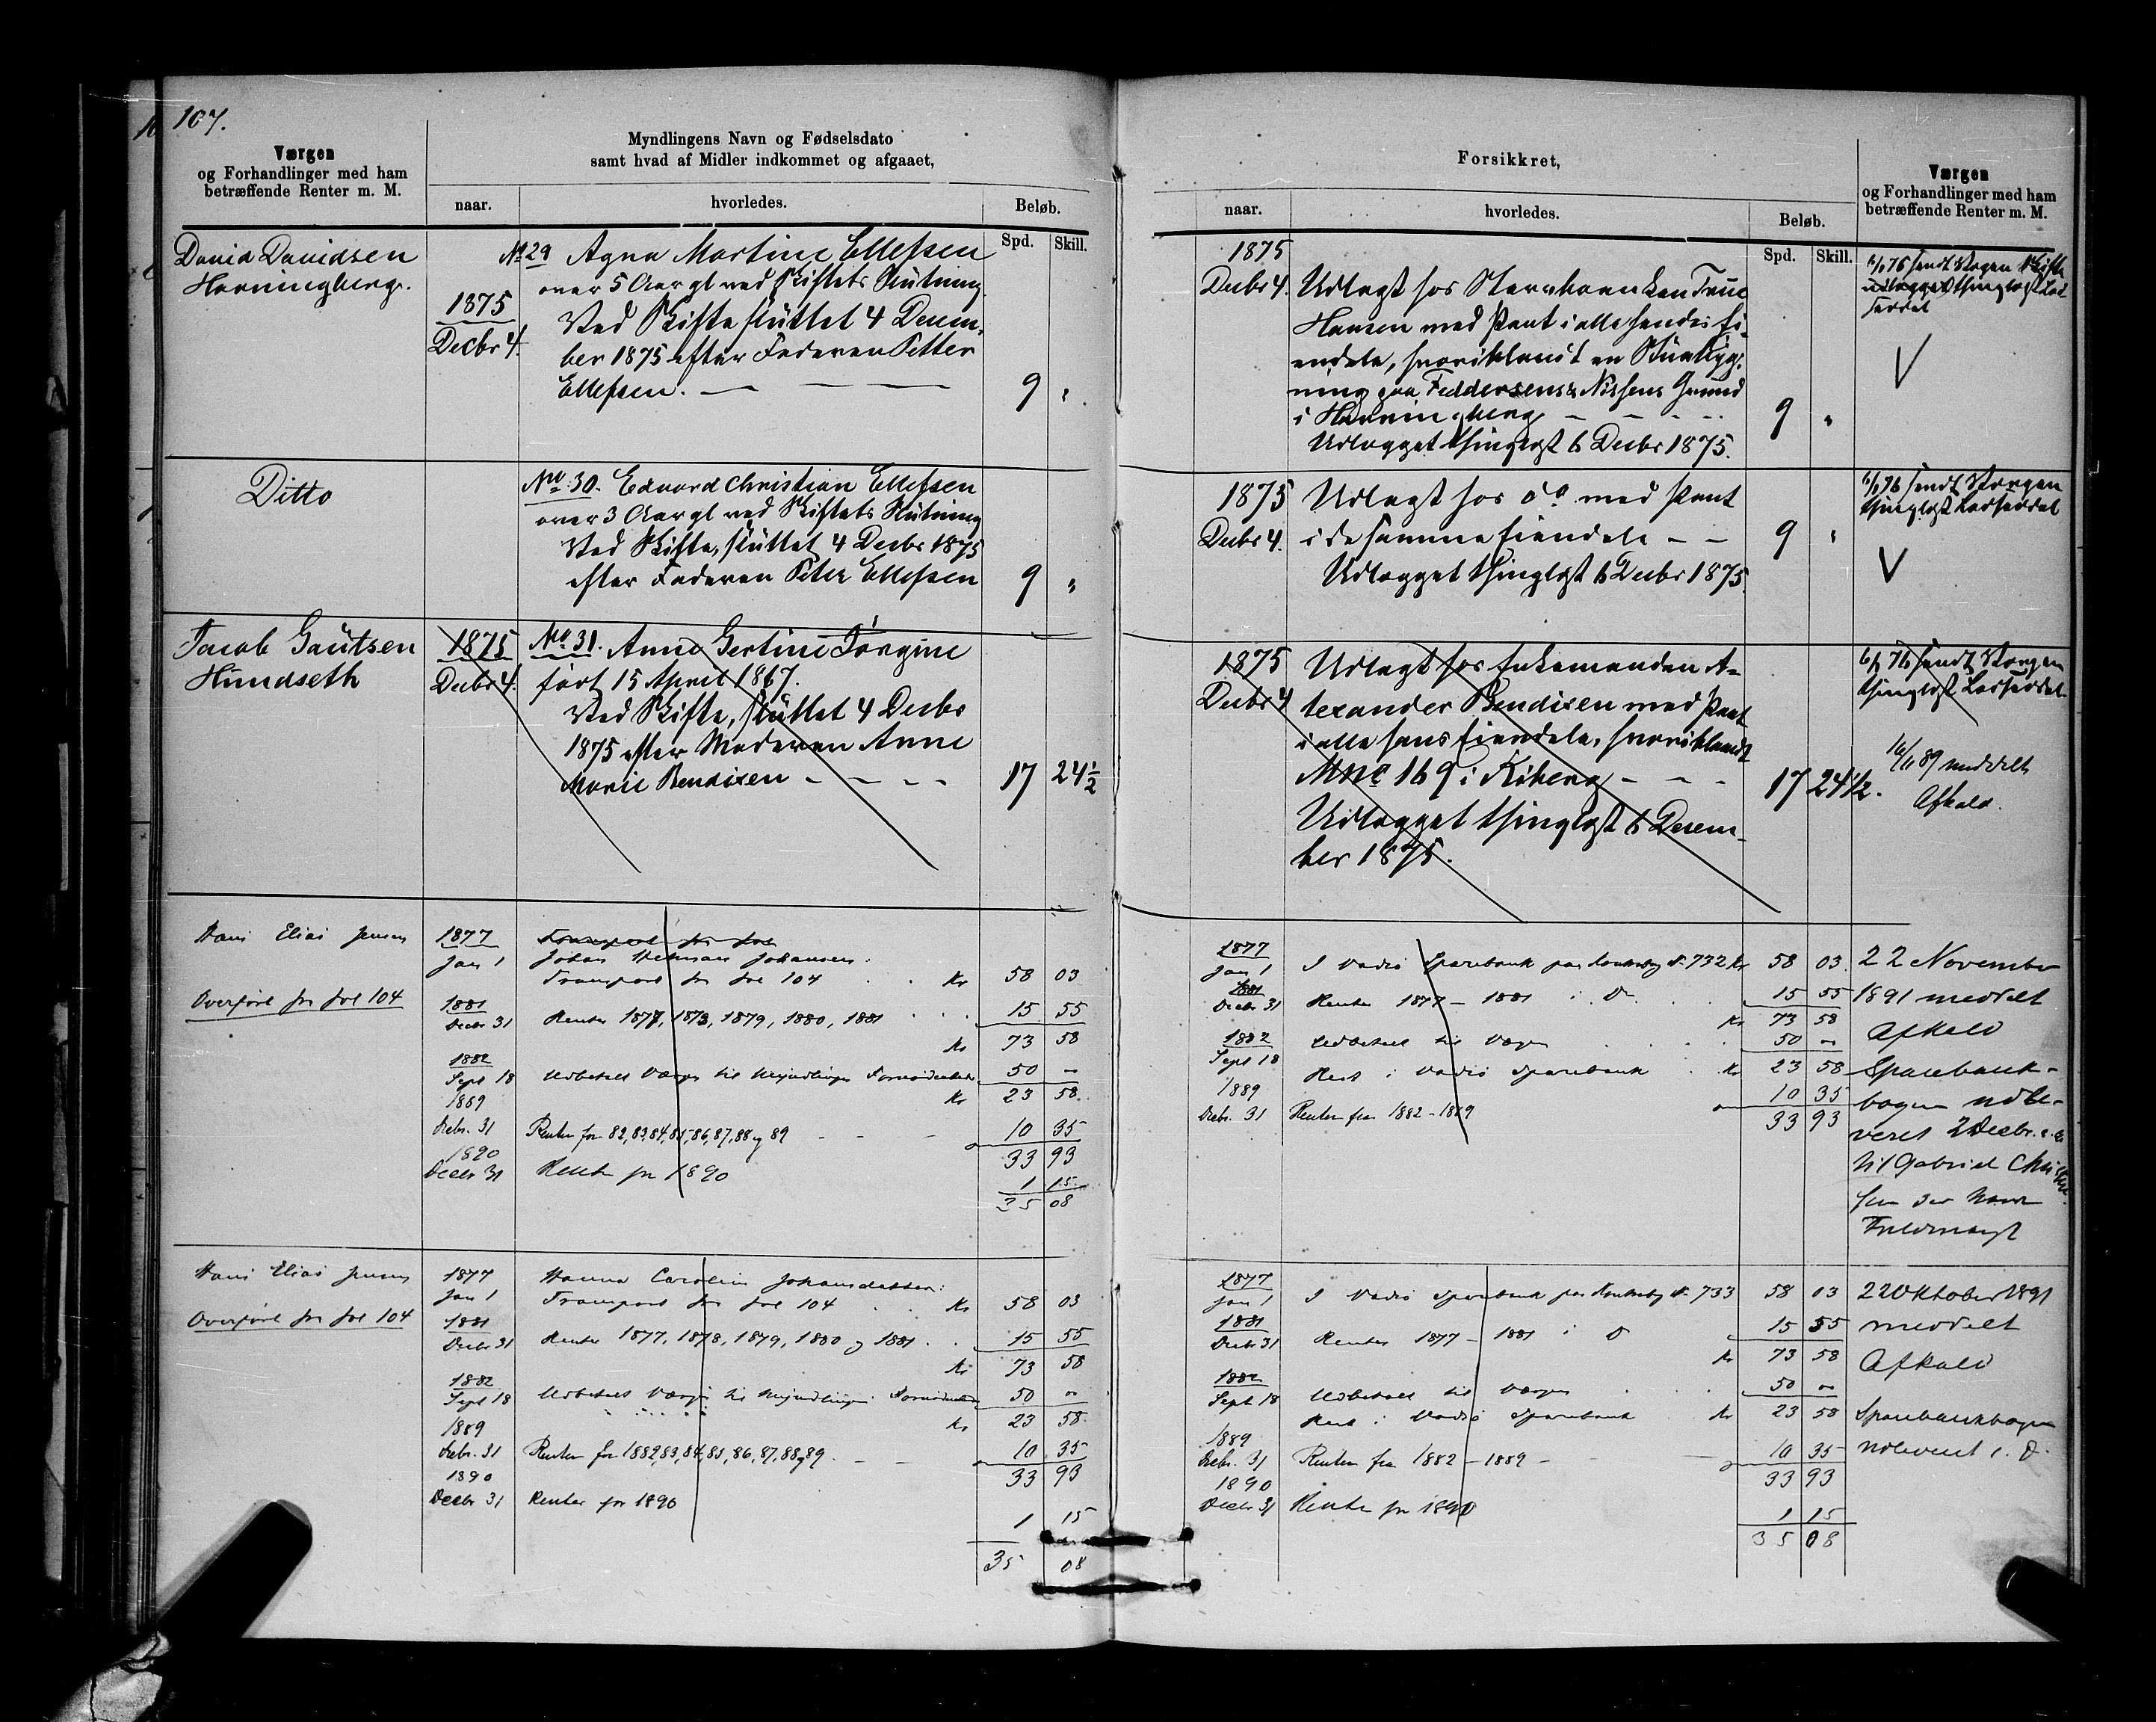 107.
Værgen
og Forhandlinger med ham
betræffende Renter m. M.
Myndlingens Navn og Fødselsdato
samt hvad af Midler indkommet og afgaaet,
naar.
hvorledes.
Beløb.
Spd. Skill.
David Davidsen
Havningberg.
1875
Decbr 4.
No 29 Agna Martine Ellefsen
over 5 Aar gl ved Skiftets Slutning
Ved Skifte sluttet 4 Decem-
ber 1875 efter Faderen Petter
Ellefsen. — — —
9 "
Ditto
No 30. Edvard Christian Ellefsen
over 3 Aar gl ved Skiftets Slutning
Ved Skifte, sluttet 4 Decbr 1875
efter Faderen Peter Ellefsen
9 "
Jacob Gautsen
Hundseth
1875
Decbr 4.
No 31. Anne Gertine Jørgine
født 15 April 1867.
Ved Skifte, sluttet 4 Decbr
1875 efter Moderen Anne
Marie Bendixen - - - -
17 24 1/2
Hans Elias Jensen
Overført fra fol 104
1877
Jan 1
Transport fra fol
Johan Johansen:
Transport fra fol 104 . . Kr 58 03
1881
Decbr 31
Renter 1877, 1878, 1879, 1880, 1881 . . . 15 55
Kr 73 58
1882
Sept 18
Udbetalt Værgen til Myndlingens Fornødenheder 50 "
Kr 23 58
1889
Decbr. 31
Renter for 82, 83, 84, 85, 86, 87, 88 og 89 - - - 10 35
33 93
1890
Decbr 31
Renter for 1890
1 15
35 08
Hans Elias Jensen
Overført fra fol 104
1877
Jan 1
Hanna Caroline Johansdatter:
Transport fra fol 104 . . Kr 58 03
1881
Decbr 31
Renter 1877, 1878, 1879, 1880 og 1881 . . 15 55
Kr 73 58
1882
Sept 18
Udbetalt Værgen til Myndlingens Fornødenheder 50 "
Kr 23 58
1889
Decbr. 31
Renter for 1882, 83, 84, 85, 86, 87, 88 og 89. - - 10 35
33 93
1890
Decbr 31
Renter for 1890
1 15
35 08
Forsikkret,
naar.
hvorledes.
Beløb.
Spd. Skill.
Værgen
og Forhandlinger med ham
betræffende Renter m. M.
1875
Decbr 4.
Udlagt hos Stervboenken Trine
Hansen med Pant i alle hendes Ei-
endele, hvoriblandt en Stuebyg-
ning paa Feddersen & Nissens Grund
i Havningberg - - - -
9 "
Udlægget thinglæst 6 Decbr 1875.
6/1 76 sendt Værgen Skifte
udlægget thinglæst Lod
seddel
V
1875
Decbr 4.
Udlagt hos do med Pant
i de samme Eiendele - -
9 "
Udlægget thinglæst 6 Decbr 1875.
6/1 76 sendt Værgen
thinglæst Lodseddel
V
1875
Decbr 4
Udlagt hos Enkemanden A-
lexander Bendixen med Pant
i alle hans Eiendele, hvoriblandt
Mnr 169 i Kiberg - - -
17 24 1/2.
Udlægget thinglæst 6 Decem-
ber 1875.
6/1 76 sendt Værgen
thinglæst Lodseddel.
89 meddelt
Afkald.
1877
Jan 1
I Vadsø Sparebank paa Kontrabog No. 732 Kr 58 03
1881
Decbr 31
Renter 1877 - 1881 i Do . . . 15 55
Kr 73 58
1882
Sept 18
Udbetalt til Værgen . . . . 50 "
Rest i Vadsø Sparebank . Kr 23 58
1889
Decbr. 31
Renter fra 1882 - 1889
10 35
33 93
22 November
1891 meddelt
Afkald
Sparebank-
bogen udle-
veret 2 Decbr.
til Gabriel Christen
sen
Fuldmagt
1877
Jan 1
I Vadsø Sparebank paa Kontrabog No. 733 58 03
1881
Decbr 31
Renter 1877 - 1881 i Do
15 55
Kr 73 58
1882
Sept 18
Udbetalt til Værgen . . . 50 "
Rest i Vadsø Sparebank . Kr 23 58
1889
Decbr. 31
Renter fra 1882 - 1889 - - 10 35
33 93
1890
Decbr 31
Renter for 1890
1 15
35 08
22 Oktober 1891
meddelt
Afkald
Sparebankbogen
udleveret s. D.